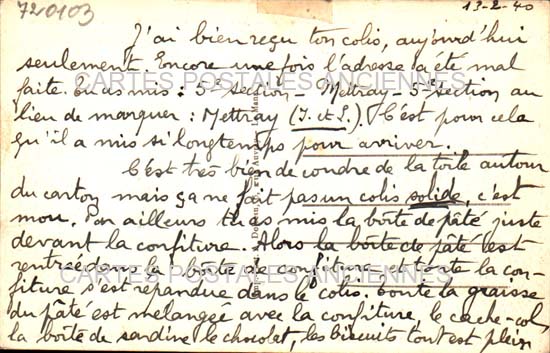 720103
13-2-40
J'ai bien reçu ton colis, aujourd'hui
seulement. Encore une fois l'adresse a été mal
faite. Tu as mis : 5e section - Mettray - 5e section au
lieu de marquer : Mettray (I. et L.). C'est pour cela
qu'il a mis si longtemps pour arriver.
C'est très bien de coudre de la toile autour
du carton mais ça ne fait pas un colis solide, c'est
mou. Par ailleurs tu as mis la boîte de pâté juste
devant la confiture. Alors la boîte de pâté est
rentrée dans la boîte de confiture et toute la con-
fiture s'est répandue dans le colis. Toute la graisse
du pâté est mélangée avec la confiture, le cache-col,
la boîte de sardine le chocolat, les biscuits tout est plein
CARTES POSTALES ANCIENNES
CARTES POSTALES ANCIENNES